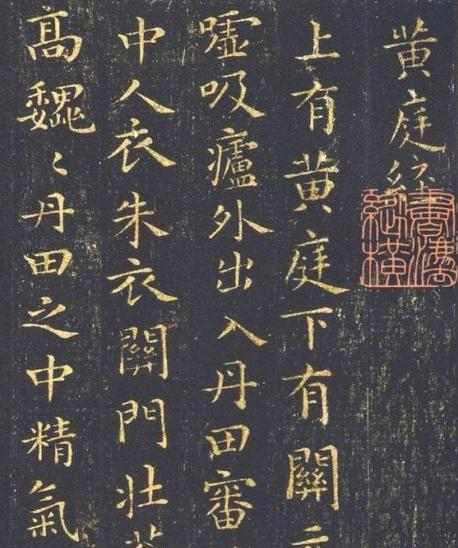 黄庭經
上有黄庭下有關
嘘吸廬外出入丹田審
中人衣朱衣關門壯
高巍〻丹田之中精氣